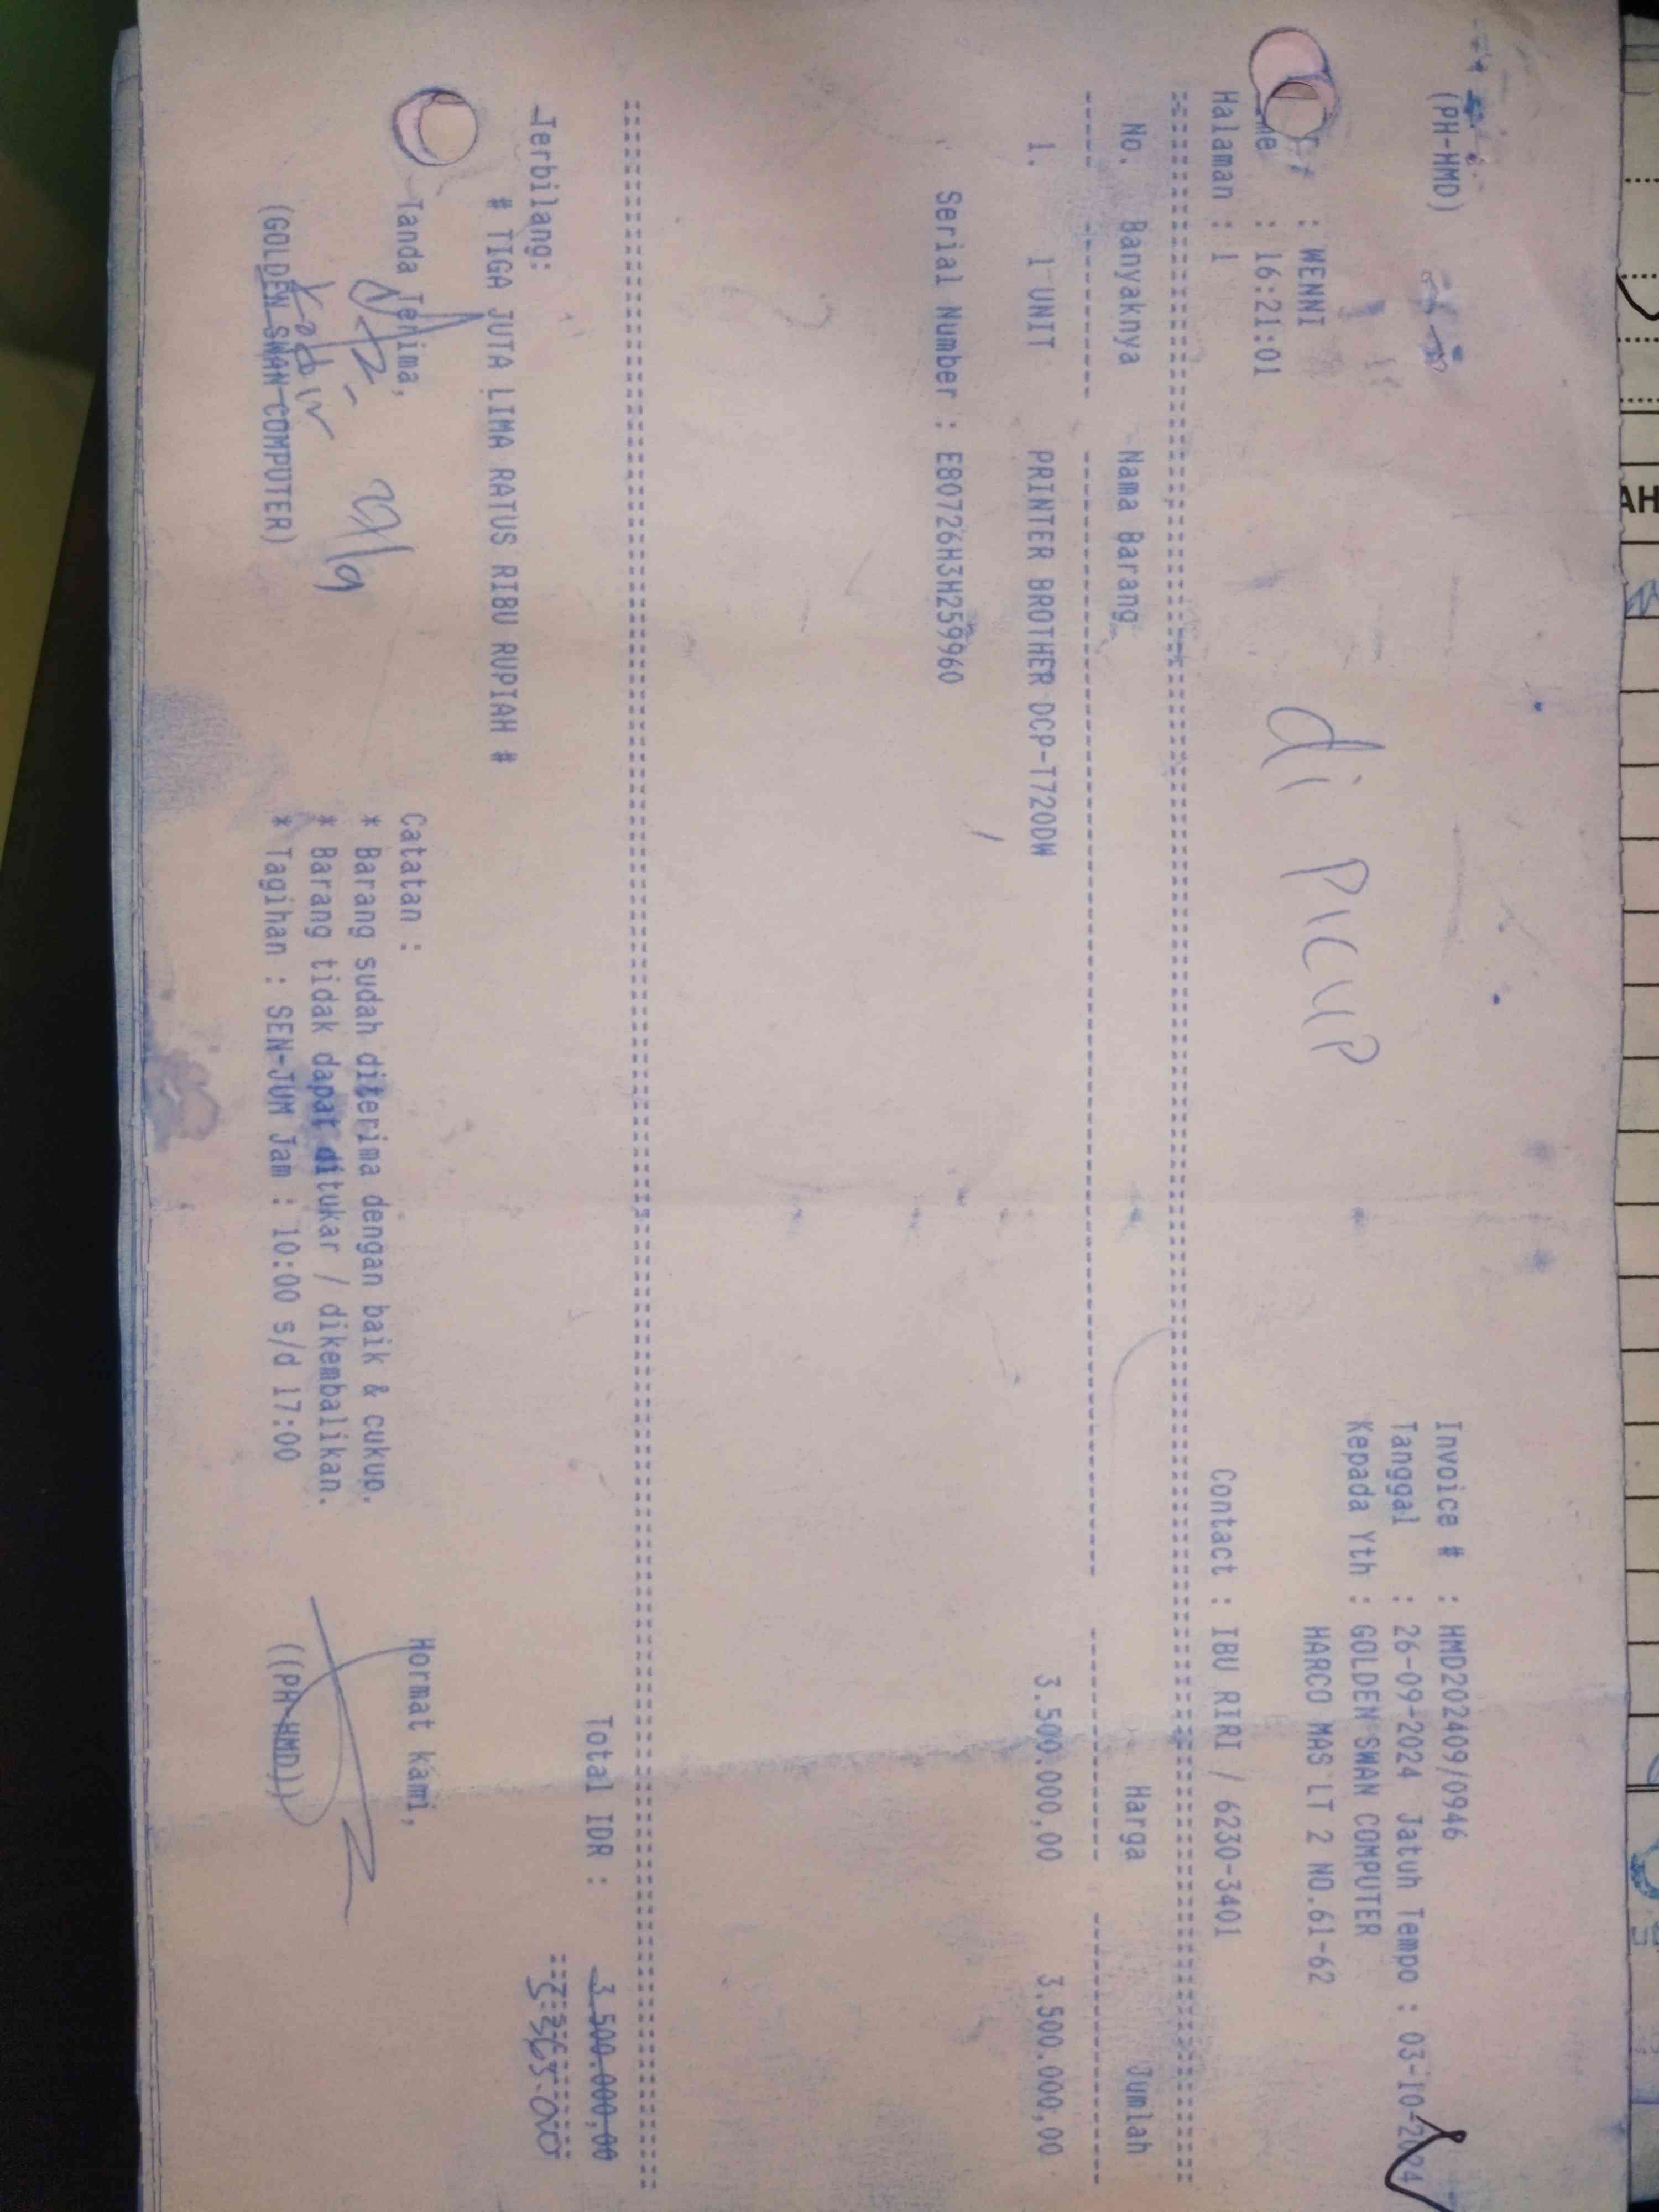 (PH-HMD)
Invoice # : HMD202409/0946
Tanggal : 26-09-2024 Jatuh Tempo : 03-10-2024
Kepada Yth : GOLDEN SWAN COMPUTER
: WENNI
HARCO MAS LT 2 NO.61-62
me : 16:21:01
Halaman : 1
Contact : IBU RIRI / 6230-3401
di PICUP
No. Banyaknya Nama Barang Harga Jumlah
1. 1 UNIT PRINTER BROTHER DCP-T720DW 3.500.000,00 3.500.000,00
Serial Number : E80726H3H259960
Total IDR : 3.500.000,00
Terbilang:
3.365.000
# TIGA JUTA LIMA RATUS RIBU RUPIAH #
Tanda Terima,
Catatan :
Hormat kami,
* Barang sudah diterima dengan baik & cukup.
* Barang tidak dapat ditukar / dikembalikan.
* Tagihan : SEN-JUM Jam : 10:00 s/d 17:00
(GOLDEN SWAN COMPUTER)
((PH-HMD))
AH